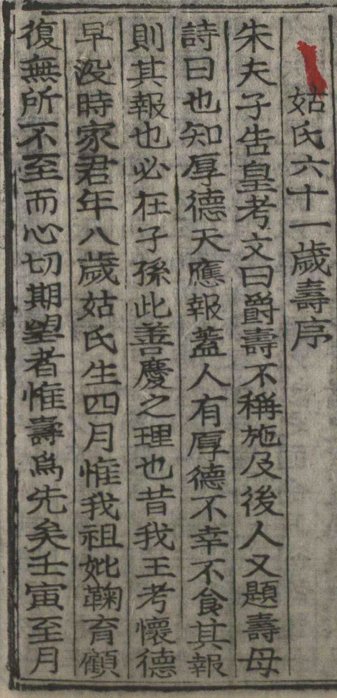 姑氏六十一歲壽序
朱夫子告皇考文曰爵壽不稱施及後人又題壽母
詩曰也知厚德天應報蓋人有厚德不幸不食其報
則其報也必在子孫此善慶之理也昔我王考懷德
早沒時家君年八歲姑氏生四月惟我祖妣鞠育顧
復無所不至而心切期望者惟壽爲先矣壬寅至月